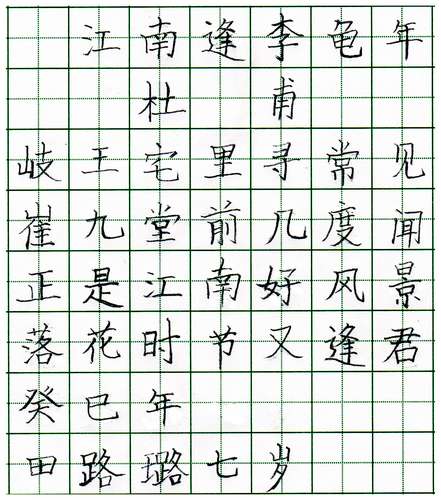 江南逢李龟年
杜甫
岐王宅里寻常见
崔九堂前几度闻
正是江南好风景
落花时节又逢君
癸巳年
田路璐七岁